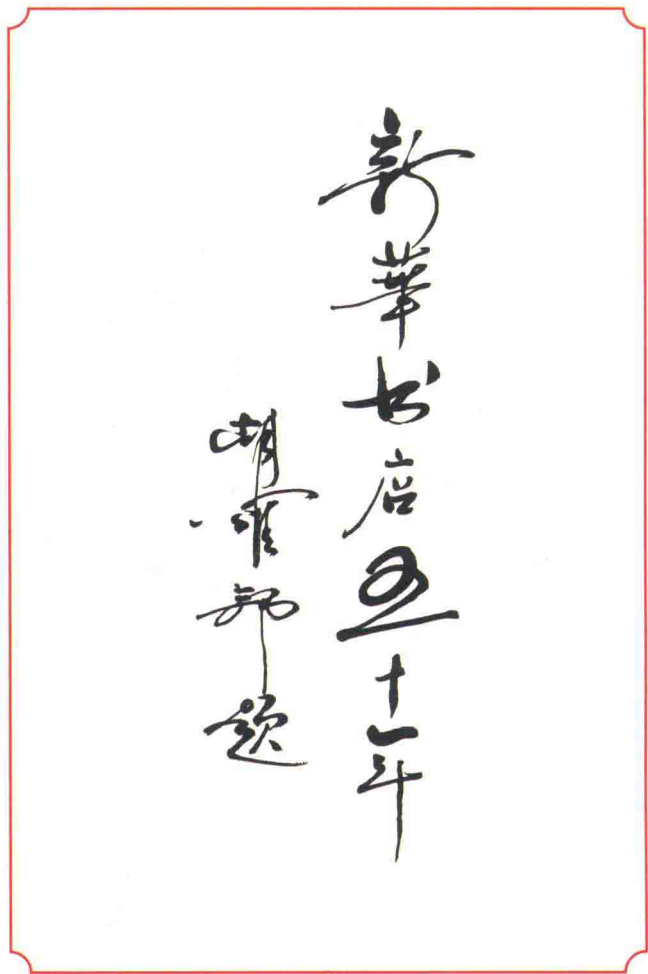 新華书店五十年
胡耀邦题